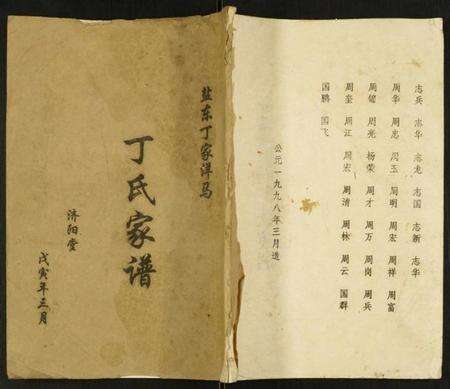 志兵 志华 志龙 志国 志新 志华
周华 周志 周玉 周明 周宏 周祥 周富
周健 周亮 杨荣 周才 周万 周岗 周兵
周奎 周江 周宏 周清 周林 周云 国群
国鹏 国飞
公元一九九八年三月造
盐东丁家洋马
丁氏家谱
济阳堂
戊寅年三月